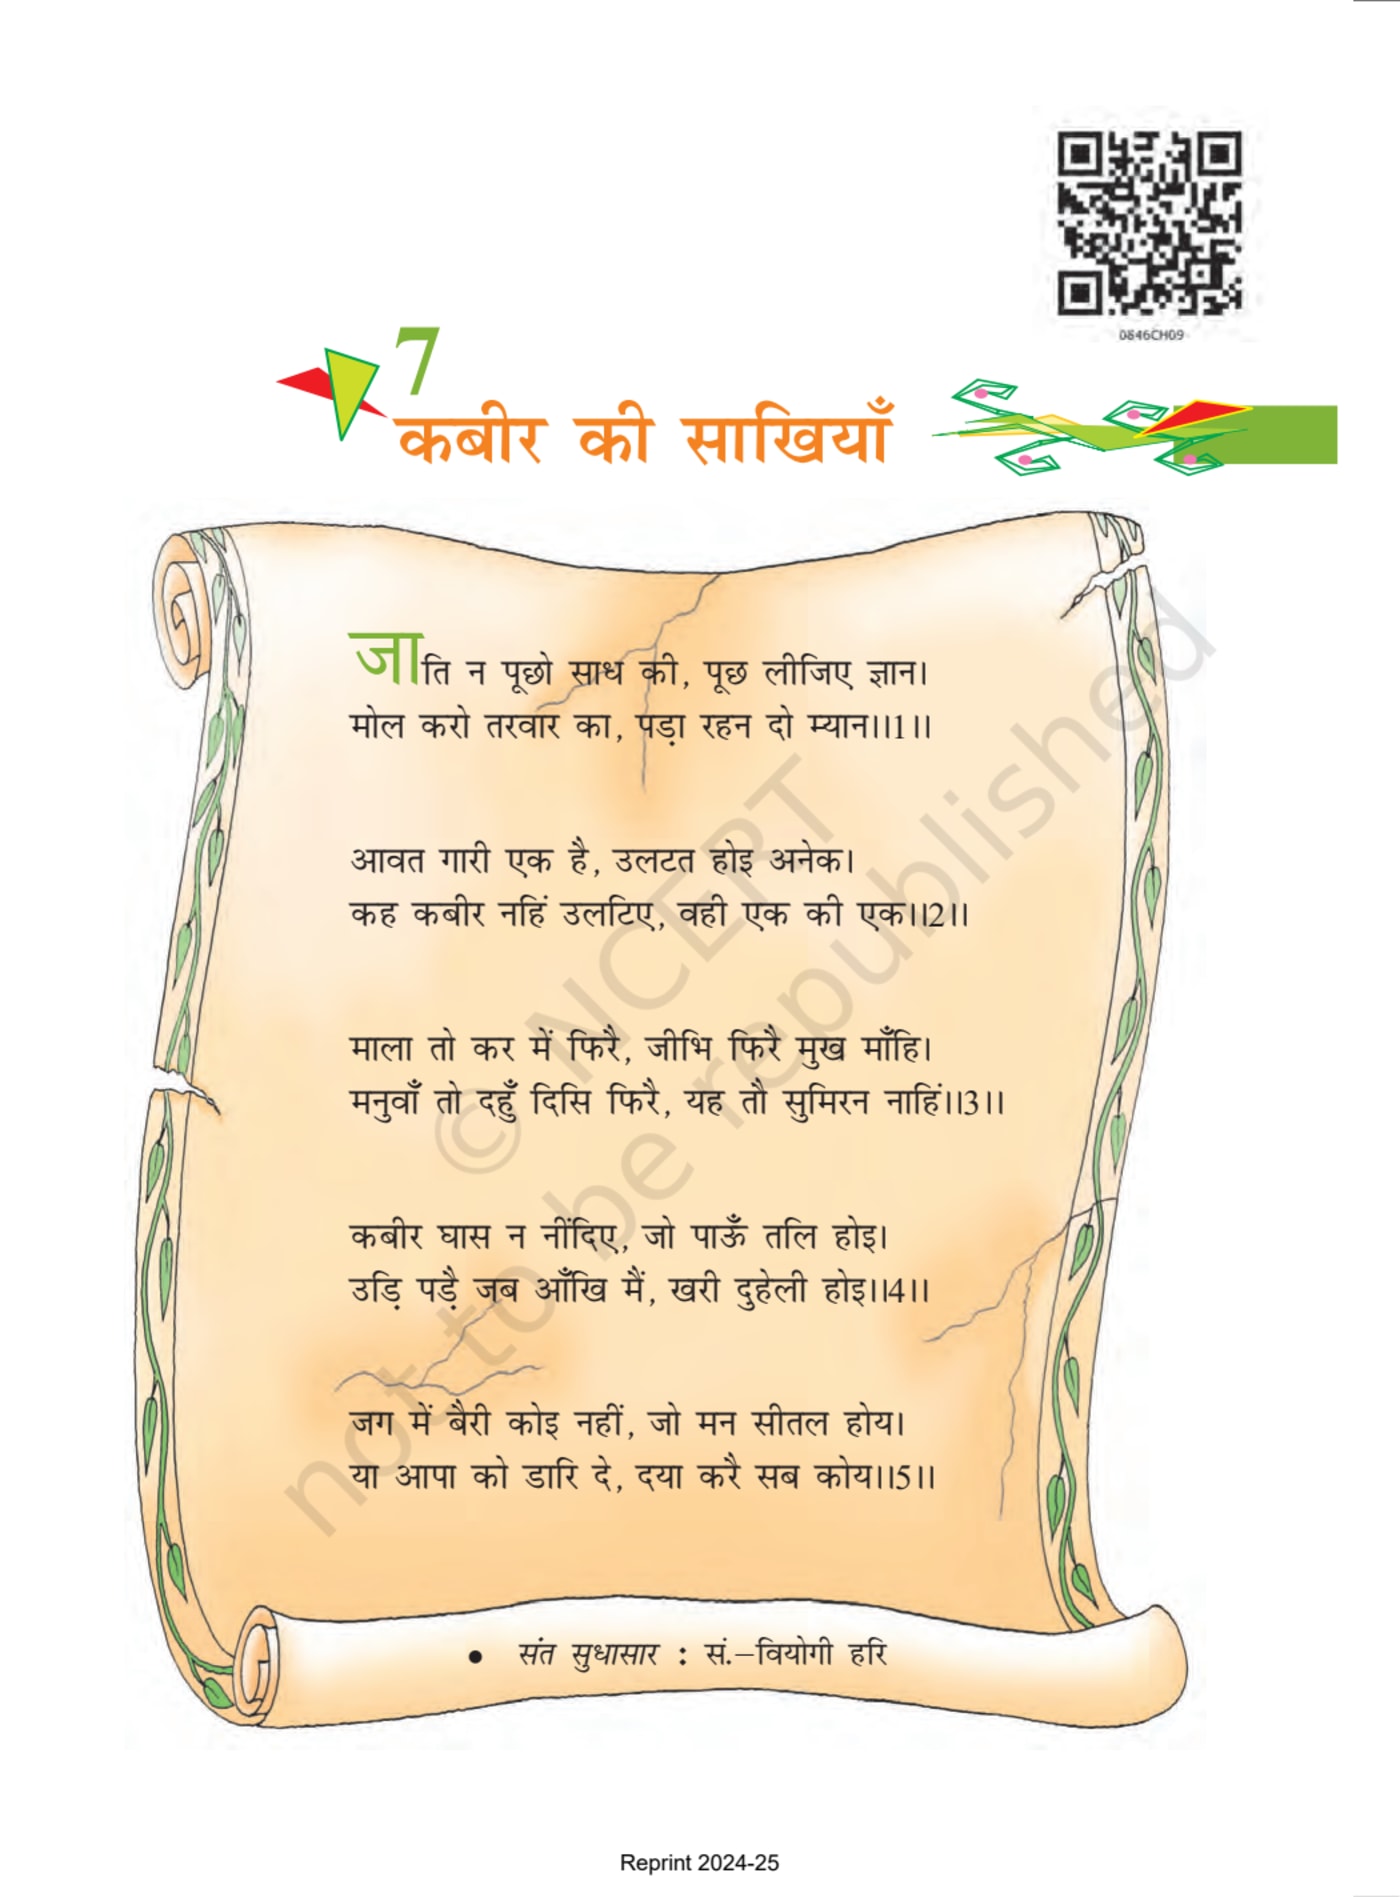 0846CH09
7
कबीर की साखियाँ
जाति न पूछो साध की, पूछ लीजिए ज्ञान।
मोल करो तरवार का, पड़ा रहन दो म्यान।।1।।
आवत गारी एक है, उलटत होइ अनेक।
कह कबीर नहिं उलटिए, वही एक की एक।।2।।
माला तो कर में फिरै, जीभि फिरै मुख माँहि।
मनुवाँ तो दहुँ दिसि फिरै, यह तौ सुमिरन नाहिं।।3।।
कबीर घास न नींदिए, जो पाऊँ तलि होइ।
उड़ि पड़ै जब आँखि मैं, खरी दुहेली होइ।।4।।
जग में बैरी कोइ नहीं, जो मन सीतल होय।
या आपा को डारि दे, दया करै सब कोय।।5।।
• संत सुधासार : सं.–वियोगी हरि
© NCERT
not to be republished
Reprint 2024-25